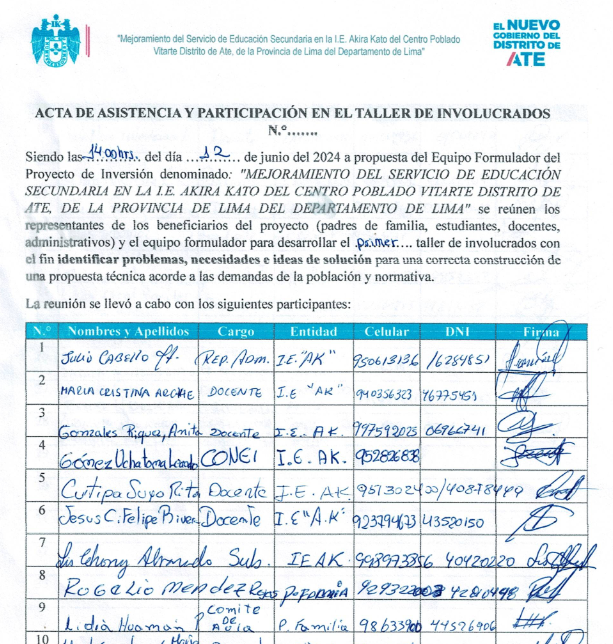 "Mejoramiento del Servicio de Educación Secundaria en la I.E. Akira Kato del Centro Poblado
Vitarte Distrito de Ate, de la Provincia de Lima del Departamento de Lima"
EL NUEVO
GOBIERNO DEL
DISTRITO DE
ATE
ACTA DE ASISTENCIA Y PARTICIPACIÓN EN EL TALLER DE INVOLUCRADOS
N.°.......
Siendo las 14:00hrs. del día ....12.... de junio del 2024 a propuesta del Equipo Formulador del
Proyecto de Inversión denominado: "MEJORAMIENTO DEL SERVICIO DE EDUCACIÓN
SECUNDARIA EN LA I.E. AKIRA KATO DEL CENTRO POBLADO VITARTE DISTRITO DE
ATE, DE LA PROVINCIA DE LIMA DEL DEPARTAMENTO DE LIMA" se reúnen los
representantes de los beneficiarios del proyecto (padres de familia, estudiantes, docentes,
administrativos) y el equipo formulador para desarrollar el primer.... taller de involucrados con
el fin identificar problemas, necesidades e ideas de solución para una correcta construcción de
una propuesta técnica acorde a las demandas de la población y normativa.
La reunión se llevó a cabo con los siguientes participantes:
N.° Nombres y Apellidos Cargo Entidad Celular DNI Firma
1 Julio Cabello REP. ADM. I.E. "AK" 950613136 16284851
2 MARIA CRISTINA DOCENTE I.E "AK" 940356323
3 Gonzales Anita Docente I.E. AK. 997592025 06966741
4 Gómez CONEI I.E. AK.
5 Cutipa Suyo Rita Docente I.E. AK
6 Jesus C. Felipe Docente I.E "A.K" 923794673 43520150
7 Alvarado Sub. IEAK. 40420220
8 Rogelio Mendez P. Familia
9 Lidia Huamán comite DE P. Familia 44526906
10